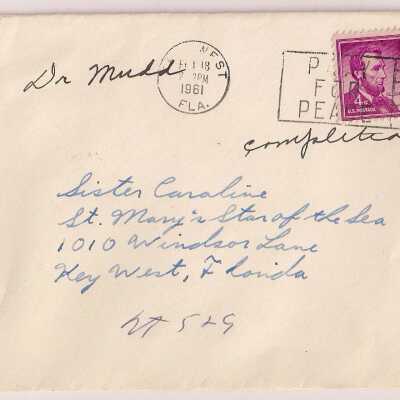 Dr Mudd
WEST
FEB 18
PM
1961
FLA.
P
FOR
PEACE
4¢
U.S. POSTAGE
completion
Sister Caroline
St. Mary's Star of the Sea
1010 Windsor Lane
Key West, Florida